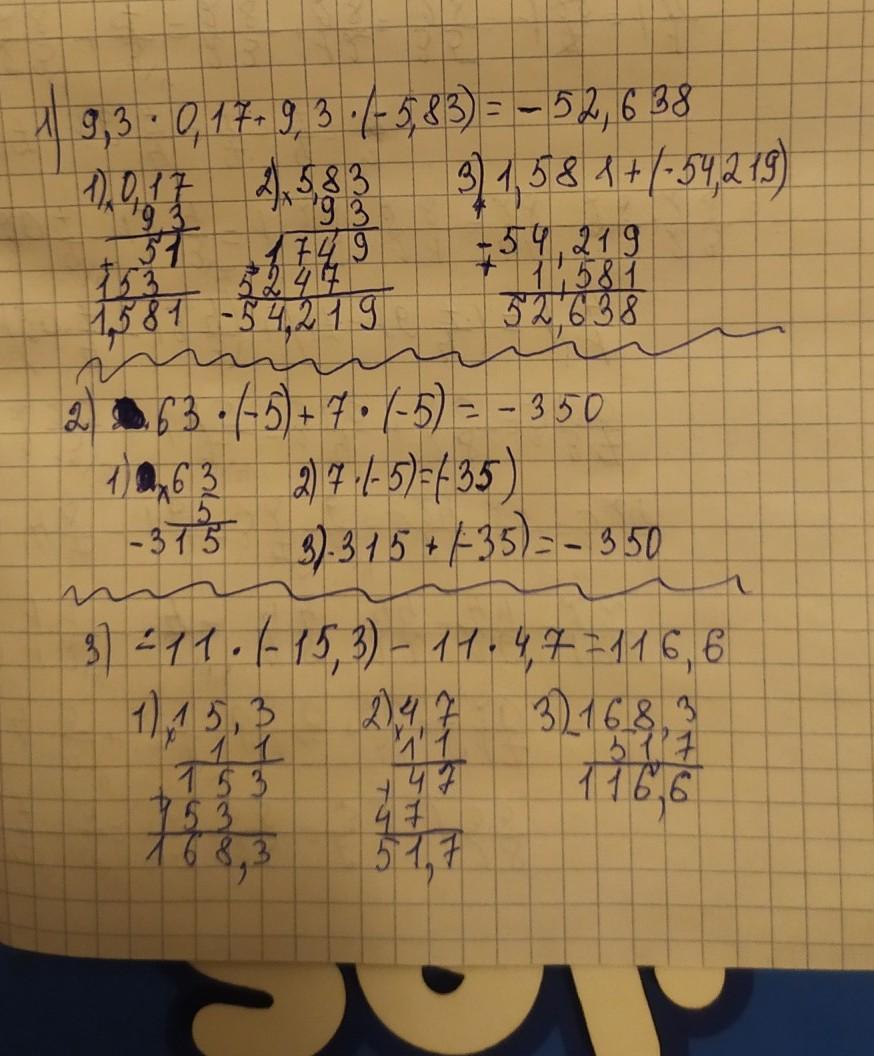 1) 9,3 · 0,17 + 9,3 · (-5,83) = -52,638
1) × 0,17 2) × 5,83 3) 1,581 + (-54,219)
9,3 9,3 +
+ 51 + 1749 -54,219
153 5247 + 1,581
1,581 -54,219 52,638
2) 63 · (-5) + 7 · (-5) = -350
1) × 63 2) 7 · (-5) = (-35)
5
-315 3) -315 + (-35) = -350
3) -11 · (-15,3) - 11 · 4,7 = 116,6
1) × 15,3 2) × 4,7 3) - 168,3
11 11 517
+ 153 + 47 116,6
153 47
168,3 51,7